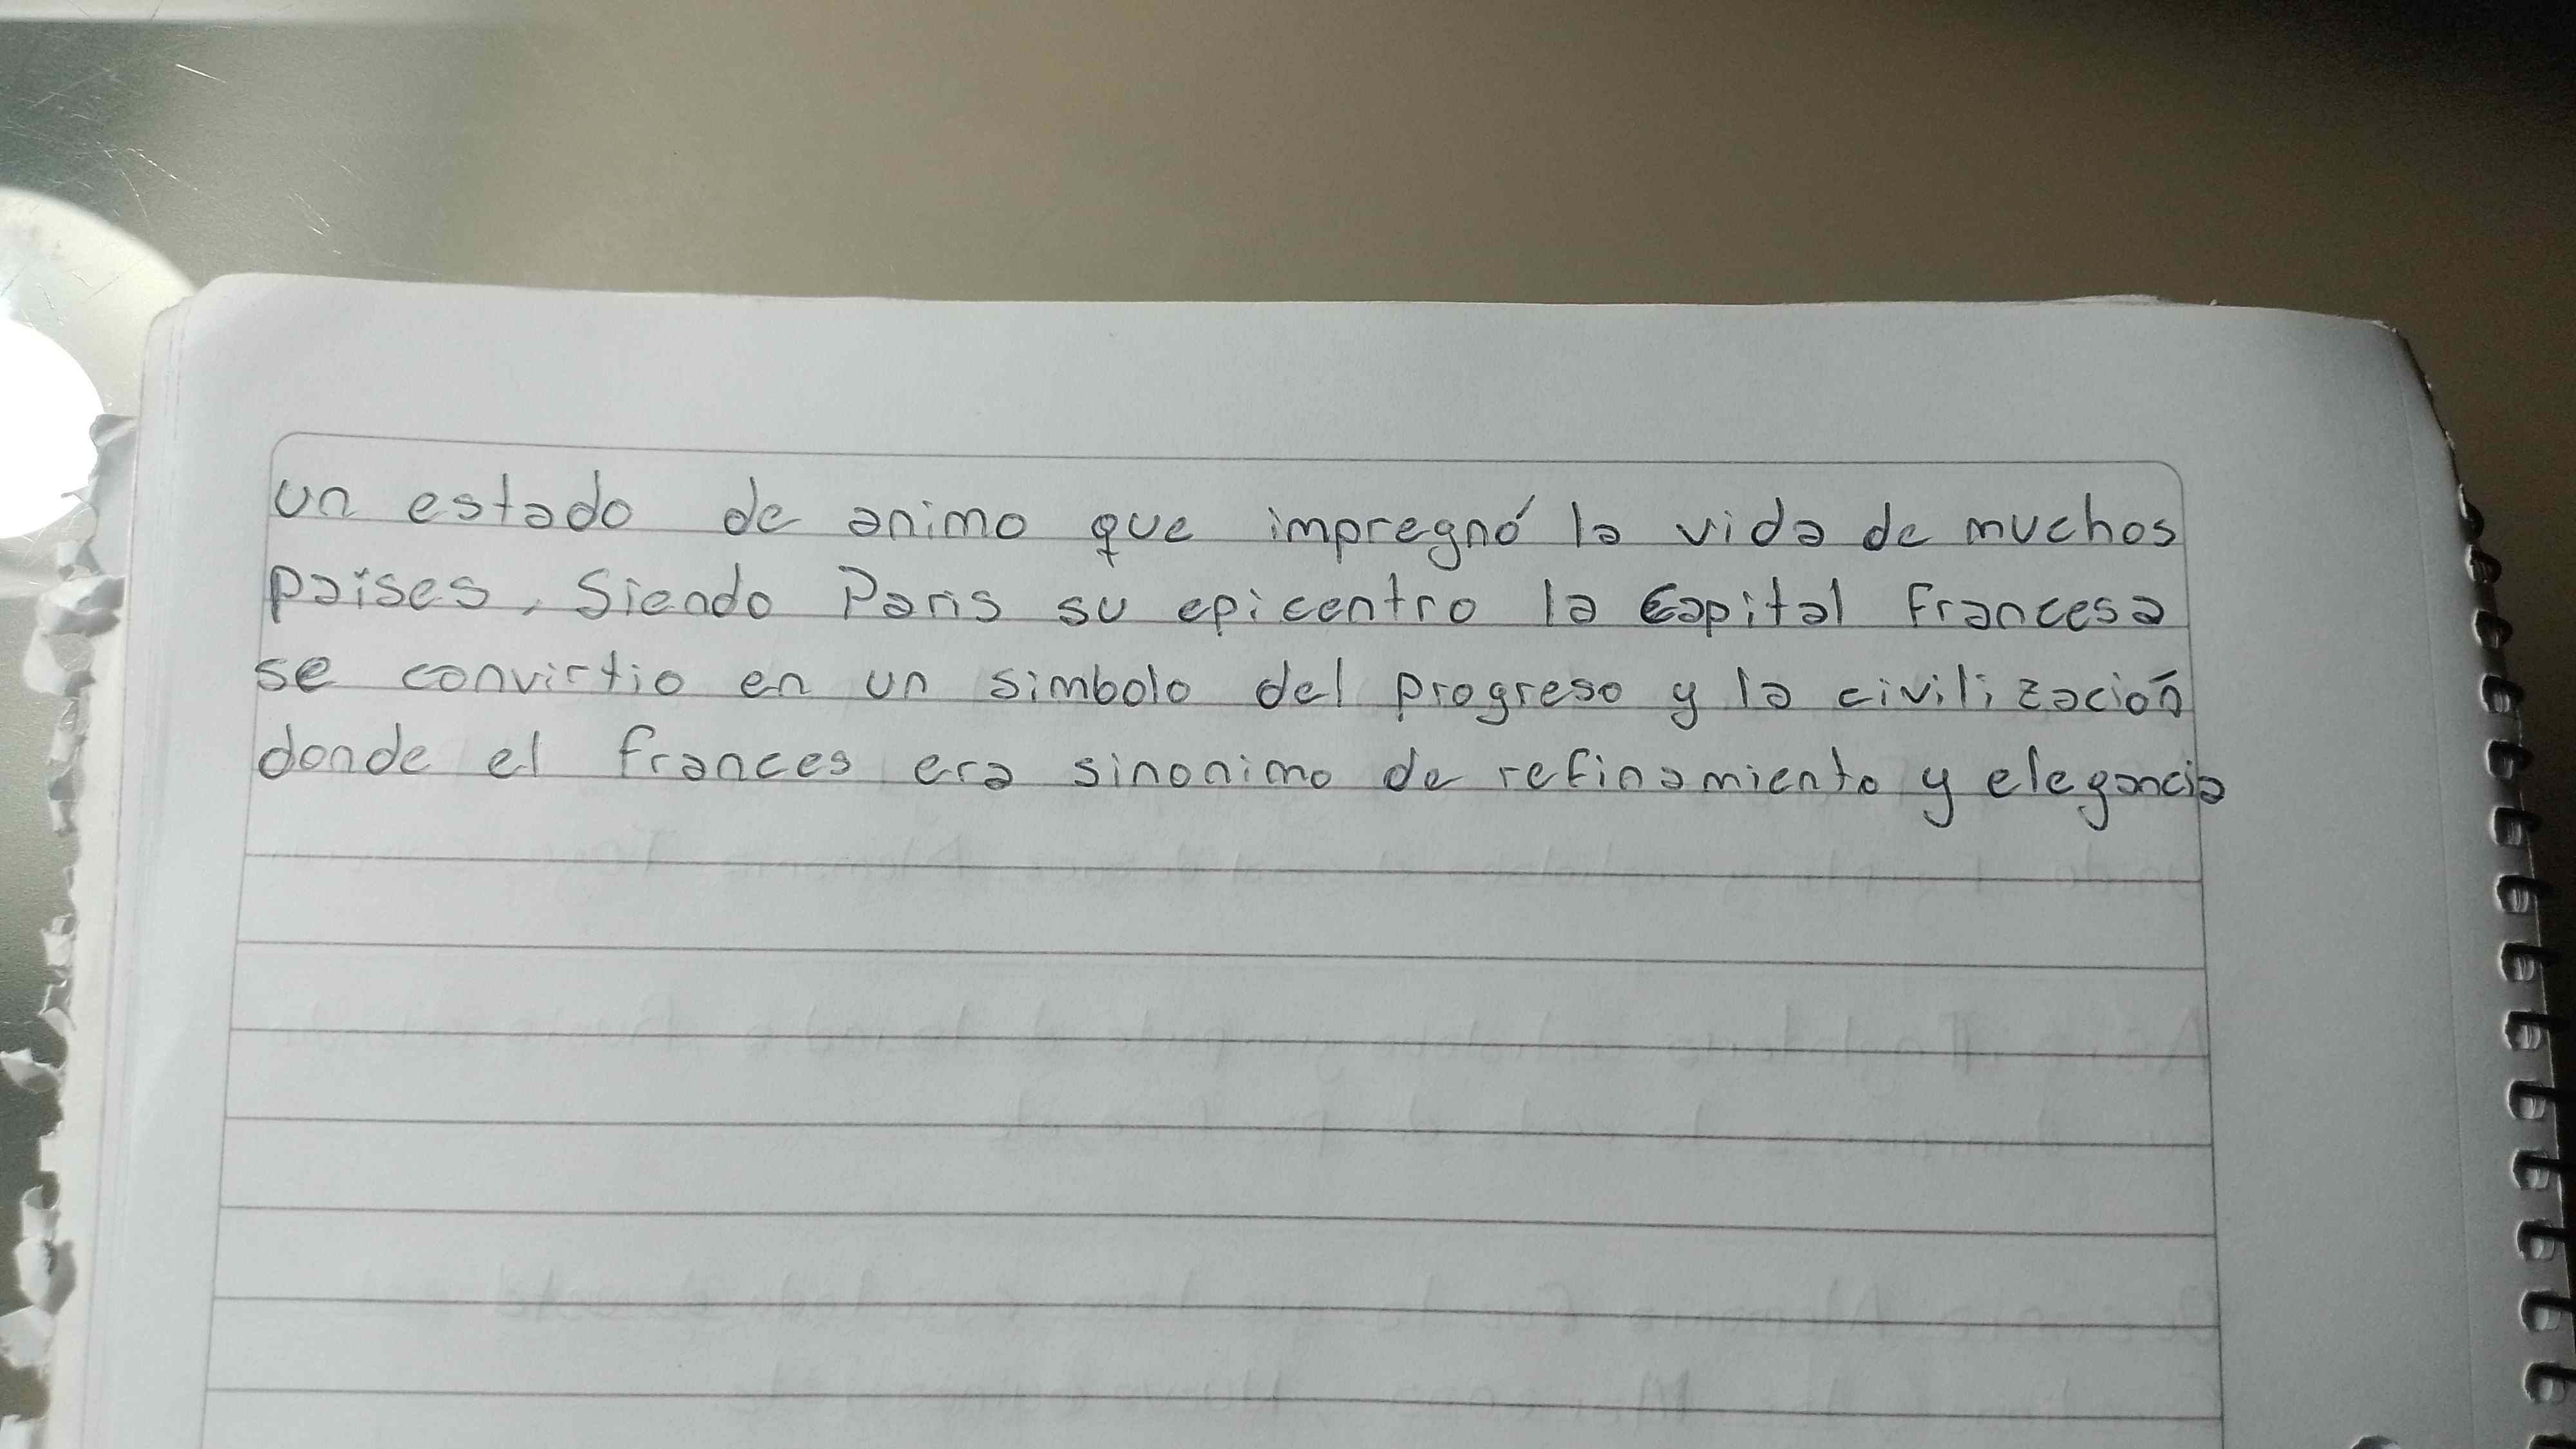 un estado de animo que impregnó la vida de muchos
paises, Siendo Paris su epicentro la Capital Francesa
se convirtio en un simbolo del progreso y la civilización
donde el frances era sinonimo de refinamiento y elegancia